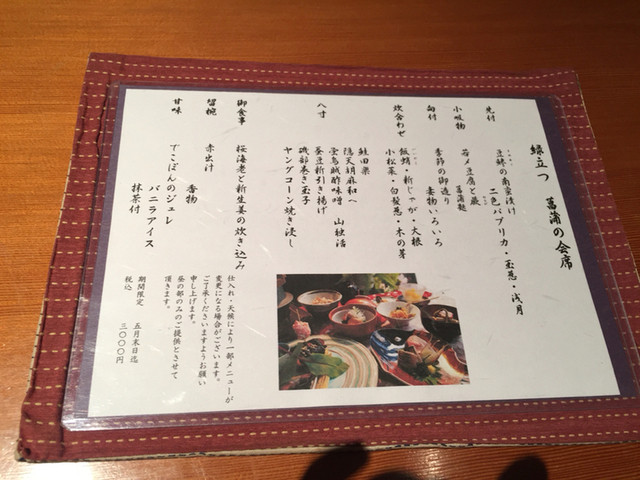 緑立つ 菖蒲の会席
先付 豆鯵の南蛮漬け
二色パプリカ・玉葱・浅月
小吸物 筍〆豆腐と蕨
菖蒲麩
向付 季節の御造り
妻物いろいろ
炊合わせ 飯蛸・新じゃが・大根
小松菜・白髪葱・木の芽
八寸 鮭田楽
隠天胡麻和へ
蛍烏賊酢味噌 山独活
蚕豆新引き揚げ
磯部巻き玉子
ヤングコーン焼き浸し
御食事 桜海老と新生姜の炊き込み
留椀 赤出汁
香物
甘味 でこぽんのジュレ
バニラアイス
抹茶付
仕入れ・天候により一部メニューが
変更になる場合がございます。
ご了承くださいますようお願い
申し上げます。
昼の部のみのご提供とさせて
頂きます。
期間限定 五月末日迄
税込 三〇〇〇円